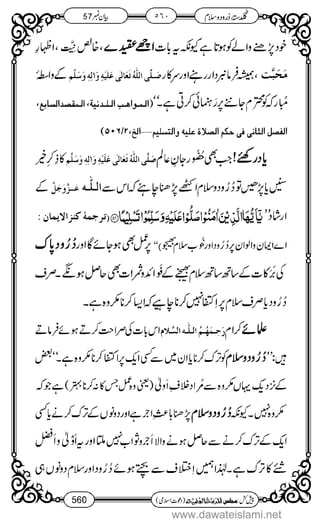 گلدستۂ دُرود و سلام ٥٦٠ بیان نمبر 57
خود پڑھنے والے کو ہوتا ہے کیونکہ یہ بات اچھے عقیدے، خالص نیّت، اظہارِ
مَحَبَّت، ہمیشہ فرمانبردار رہنے اور سرکار صَلَّی اللہُ تَعَالٰی عَلَیْہِ وَاٰلِہٖ وَسَلَّم کے واسطۂ
مُبارکہ کو محترم جاننے پر رہنمائی کرتی ہے۔‘‘ (المواہب اللدنیة، المقصد السابع،
الفصل الثانی فی حکم الصلاة علیہ والتسلیم—الخ، ٥٠٦/٢)
یاد رکھئے! جب بھی حُضُور جانِ عالم صَلَّی اللہُ تَعَالٰی عَلَیْہِ وَاٰلِہٖ وَسَلَّم کا ذِکرِ خیر
سُنیں یا پڑھیں تو دُرود و سلام اکٹھا پڑھنا چاہئے اس سے اللہ عَزَّوَجَلَّ کے
ارشاد’’ یٰۤاَیُّهَا الَّذِیْنَ اٰمَنُوْا صَلُّوْا عَلَیْهِ وَ سَلِّمُوْا تَسْلِیْمًا (ترجمۂ کنز الایمان :
اے ایمان والو ان پر دُرود اور خوب سلام بھیجو)‘‘ پر عمل بھی ہو جائے گا اور دُرودِ پاک
کی برکات کے ساتھ ساتھ سلام بھیجنے کے فوائد و ثمرات بھی حاصل ہونگے ۔ صرف
دُرود یا صرف سلام پر اِکتِفا کرنا نہیں چاہیے ایسا کرنا مکروہ ہے۔
علمائے کرام رَحِمَہُمُ اللہُ السَّلَام اس بات کی صراحت کرتے ہوئے فرماتے
ہیں:’’ دُرود و سلام کو ترک کرنا یا ان میں سے کسی ایک پر اکتفا کرنا مکروہ ہے۔‘‘ بعض
کے نزدیک یہاں مکروہ سے مُراد خلافِ اَولٰی (یعنی وہ عمل جس کا نہ کرنا بہتر) ہے جو کہ
مکروہ نہیں۔ کیونکہ دُرود و سلام پڑھنا باعثِ اجر ہے اور دونوں کے ترک کرنے یا کسی
ایک کے ترک کرنے سے حاصل ہونے والا اَجر و ثواب نہیں ملتا اور یہ اَولٰی و افضل
شئے کا ترک ہے۔ لہٰذا ہمیں اس اختلاف سے بچتے ہوئے دُرود اور سلام دونوں ہی
560 پیش کش: مجلس اَلْمَدِیْنَۃُ الْعِلْمِیّۃ (دعوتِ اسلامی)
www.dawateislami.net